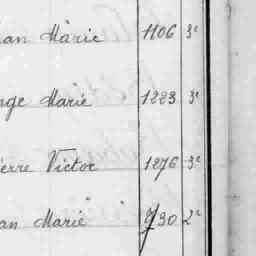 an Marie 1106 3e
nge Marie 1223 3e
ierre Victor 1276 3e
an Marie 730 2e